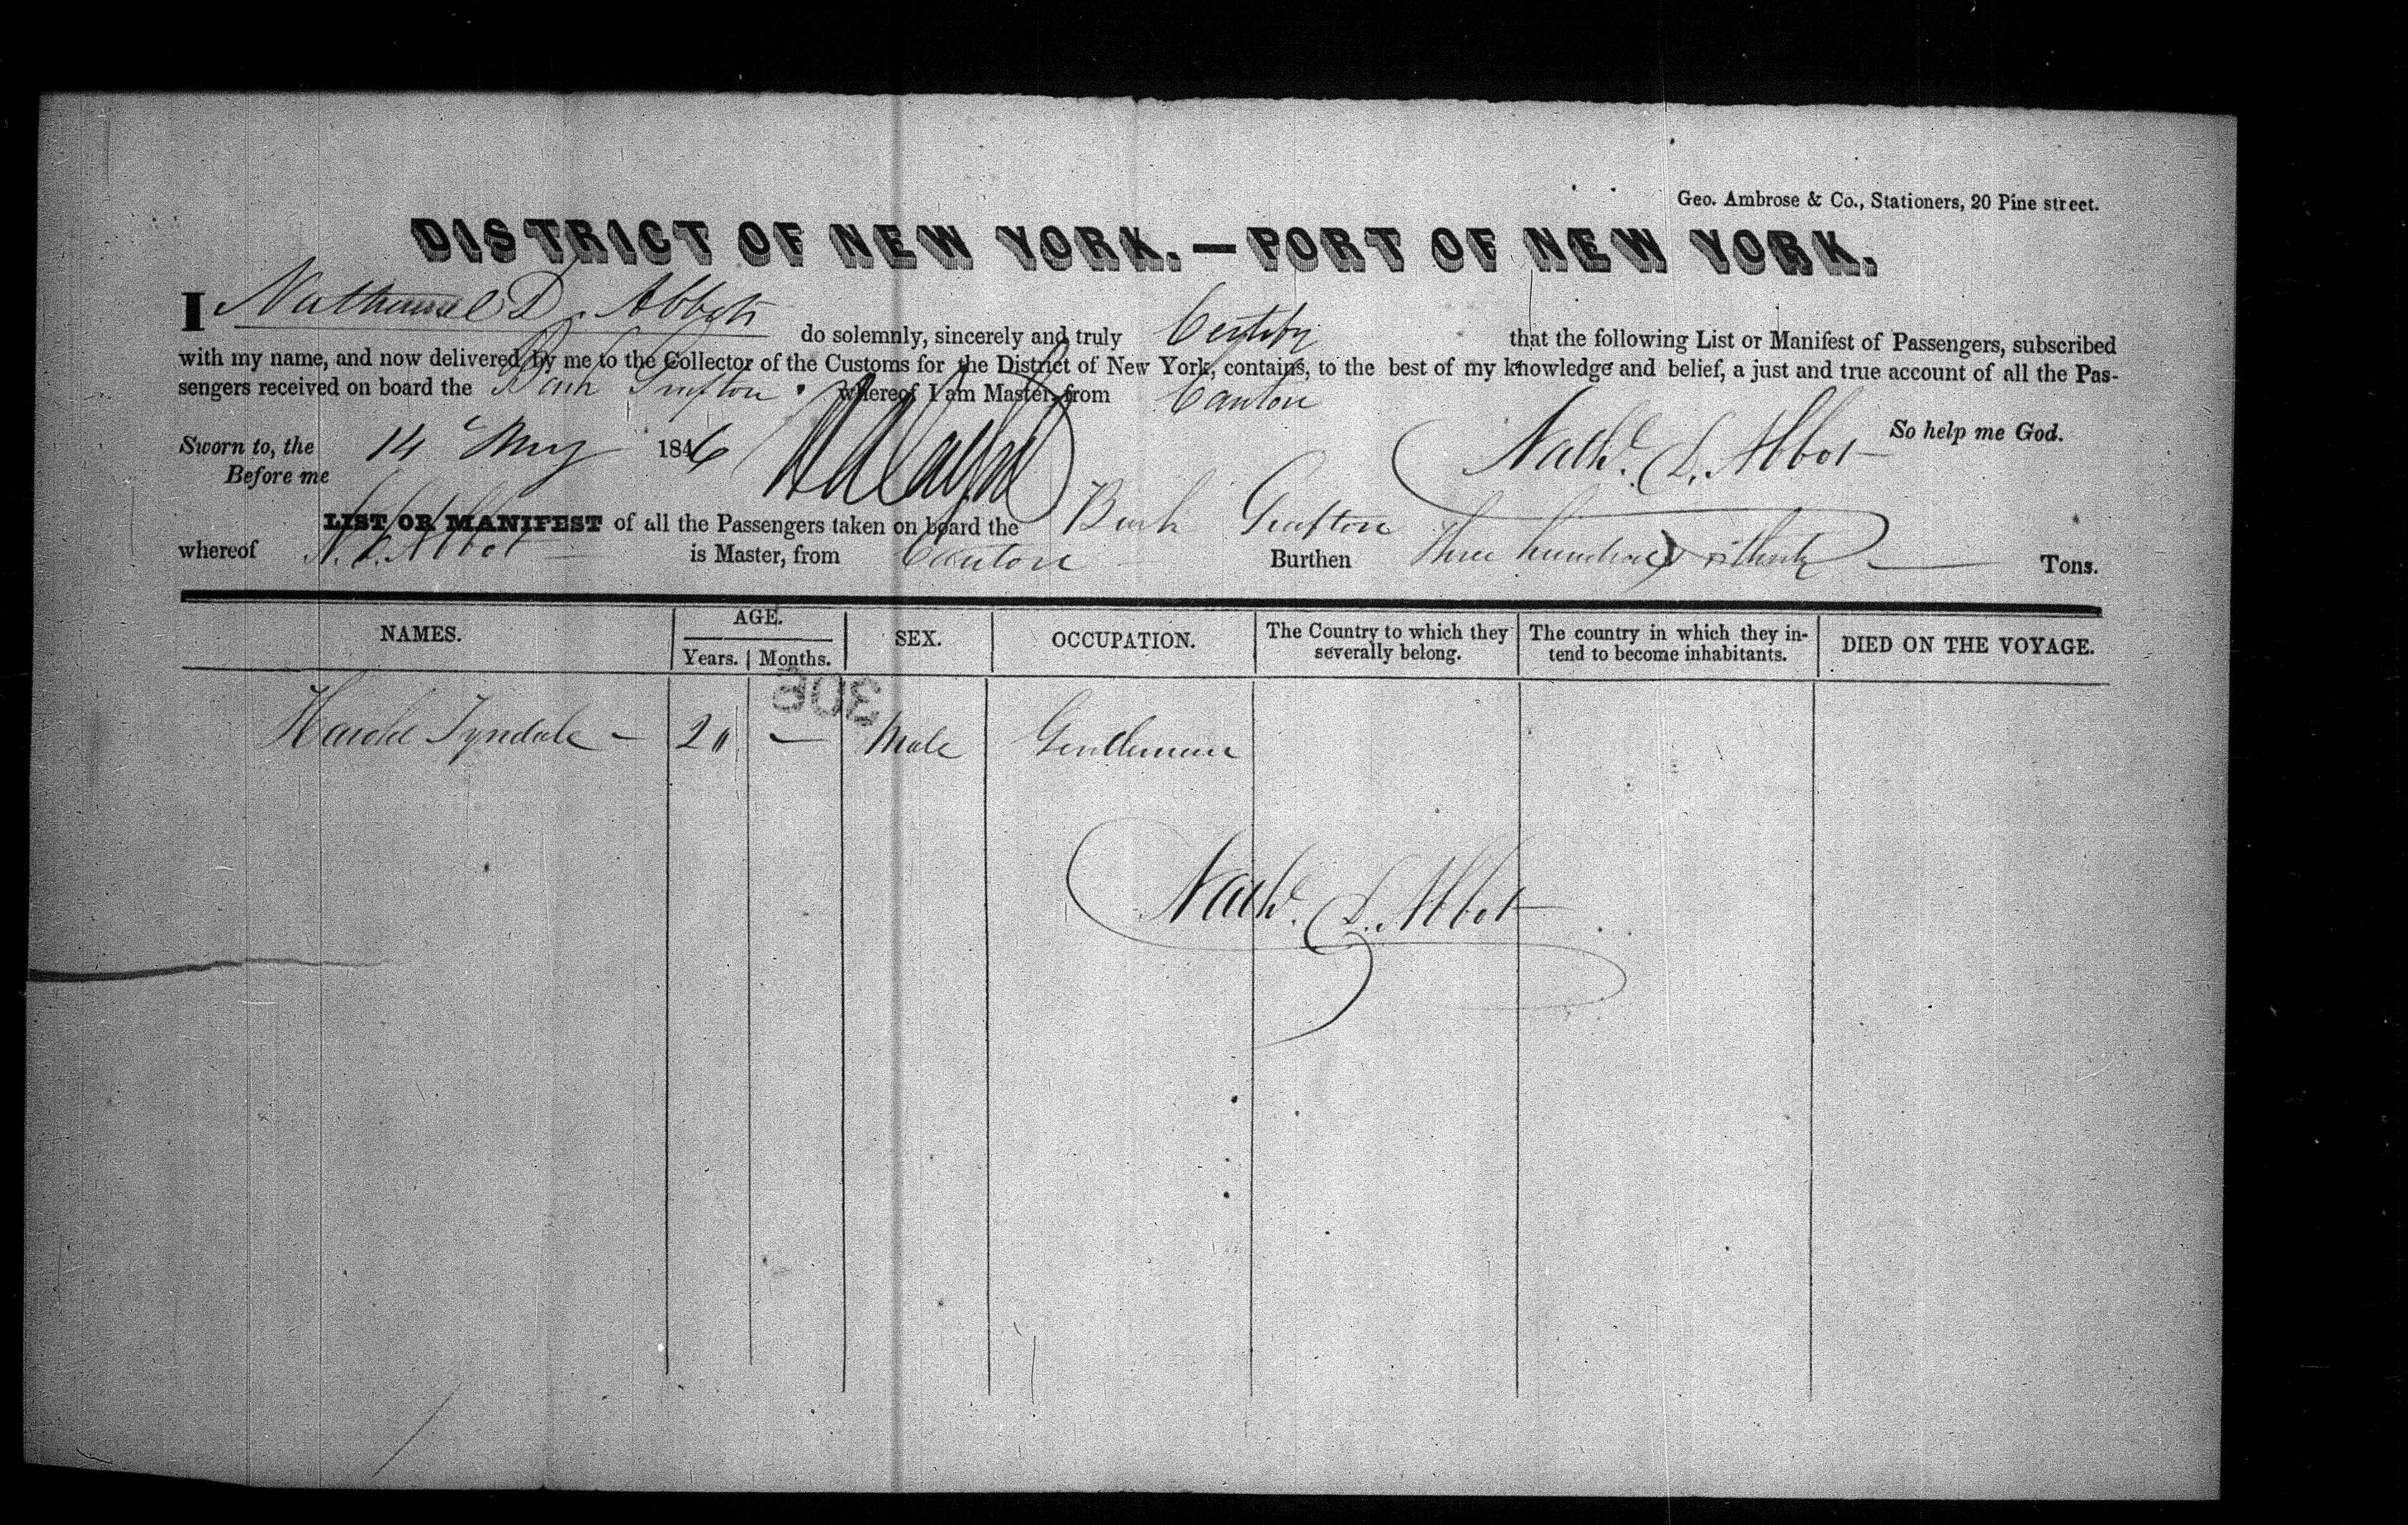 Geo. Ambrose & Co., Stationers, 20 Pine street.
DISTRICT OF NEW YORK.—PORT OF NEW YORK.
I Nathaniel D. Abbot do solemnly, sincerely and truly Certify that the following List or Manifest of Passengers, subscribed
with my name, and now delivered by me to the Collector of the Customs for the District of New York, contains, to the best of my knowledge and belief, a just and true account of all the Pas-
sengers received on board the Bark Grafton whereof I am Master, from Canton
So help me God.
Sworn to, the 14 May 1846 Nathl. D. Abbot
Before me
LIST OR MANIFEST of all the Passengers taken on board the Bark Grafton
whereof N. D. Abbot is Master, from Canton Burthen Three hundred Tons.
NAMES. AGE. Years. Months. SEX. OCCUPATION. The Country to which they severally belong. The country in which they in-tend to become inhabitants. DIED ON THE VOYAGE.
306
Harold Tyndale — 20 — Male Gentleman
Nathl. D. Abbot